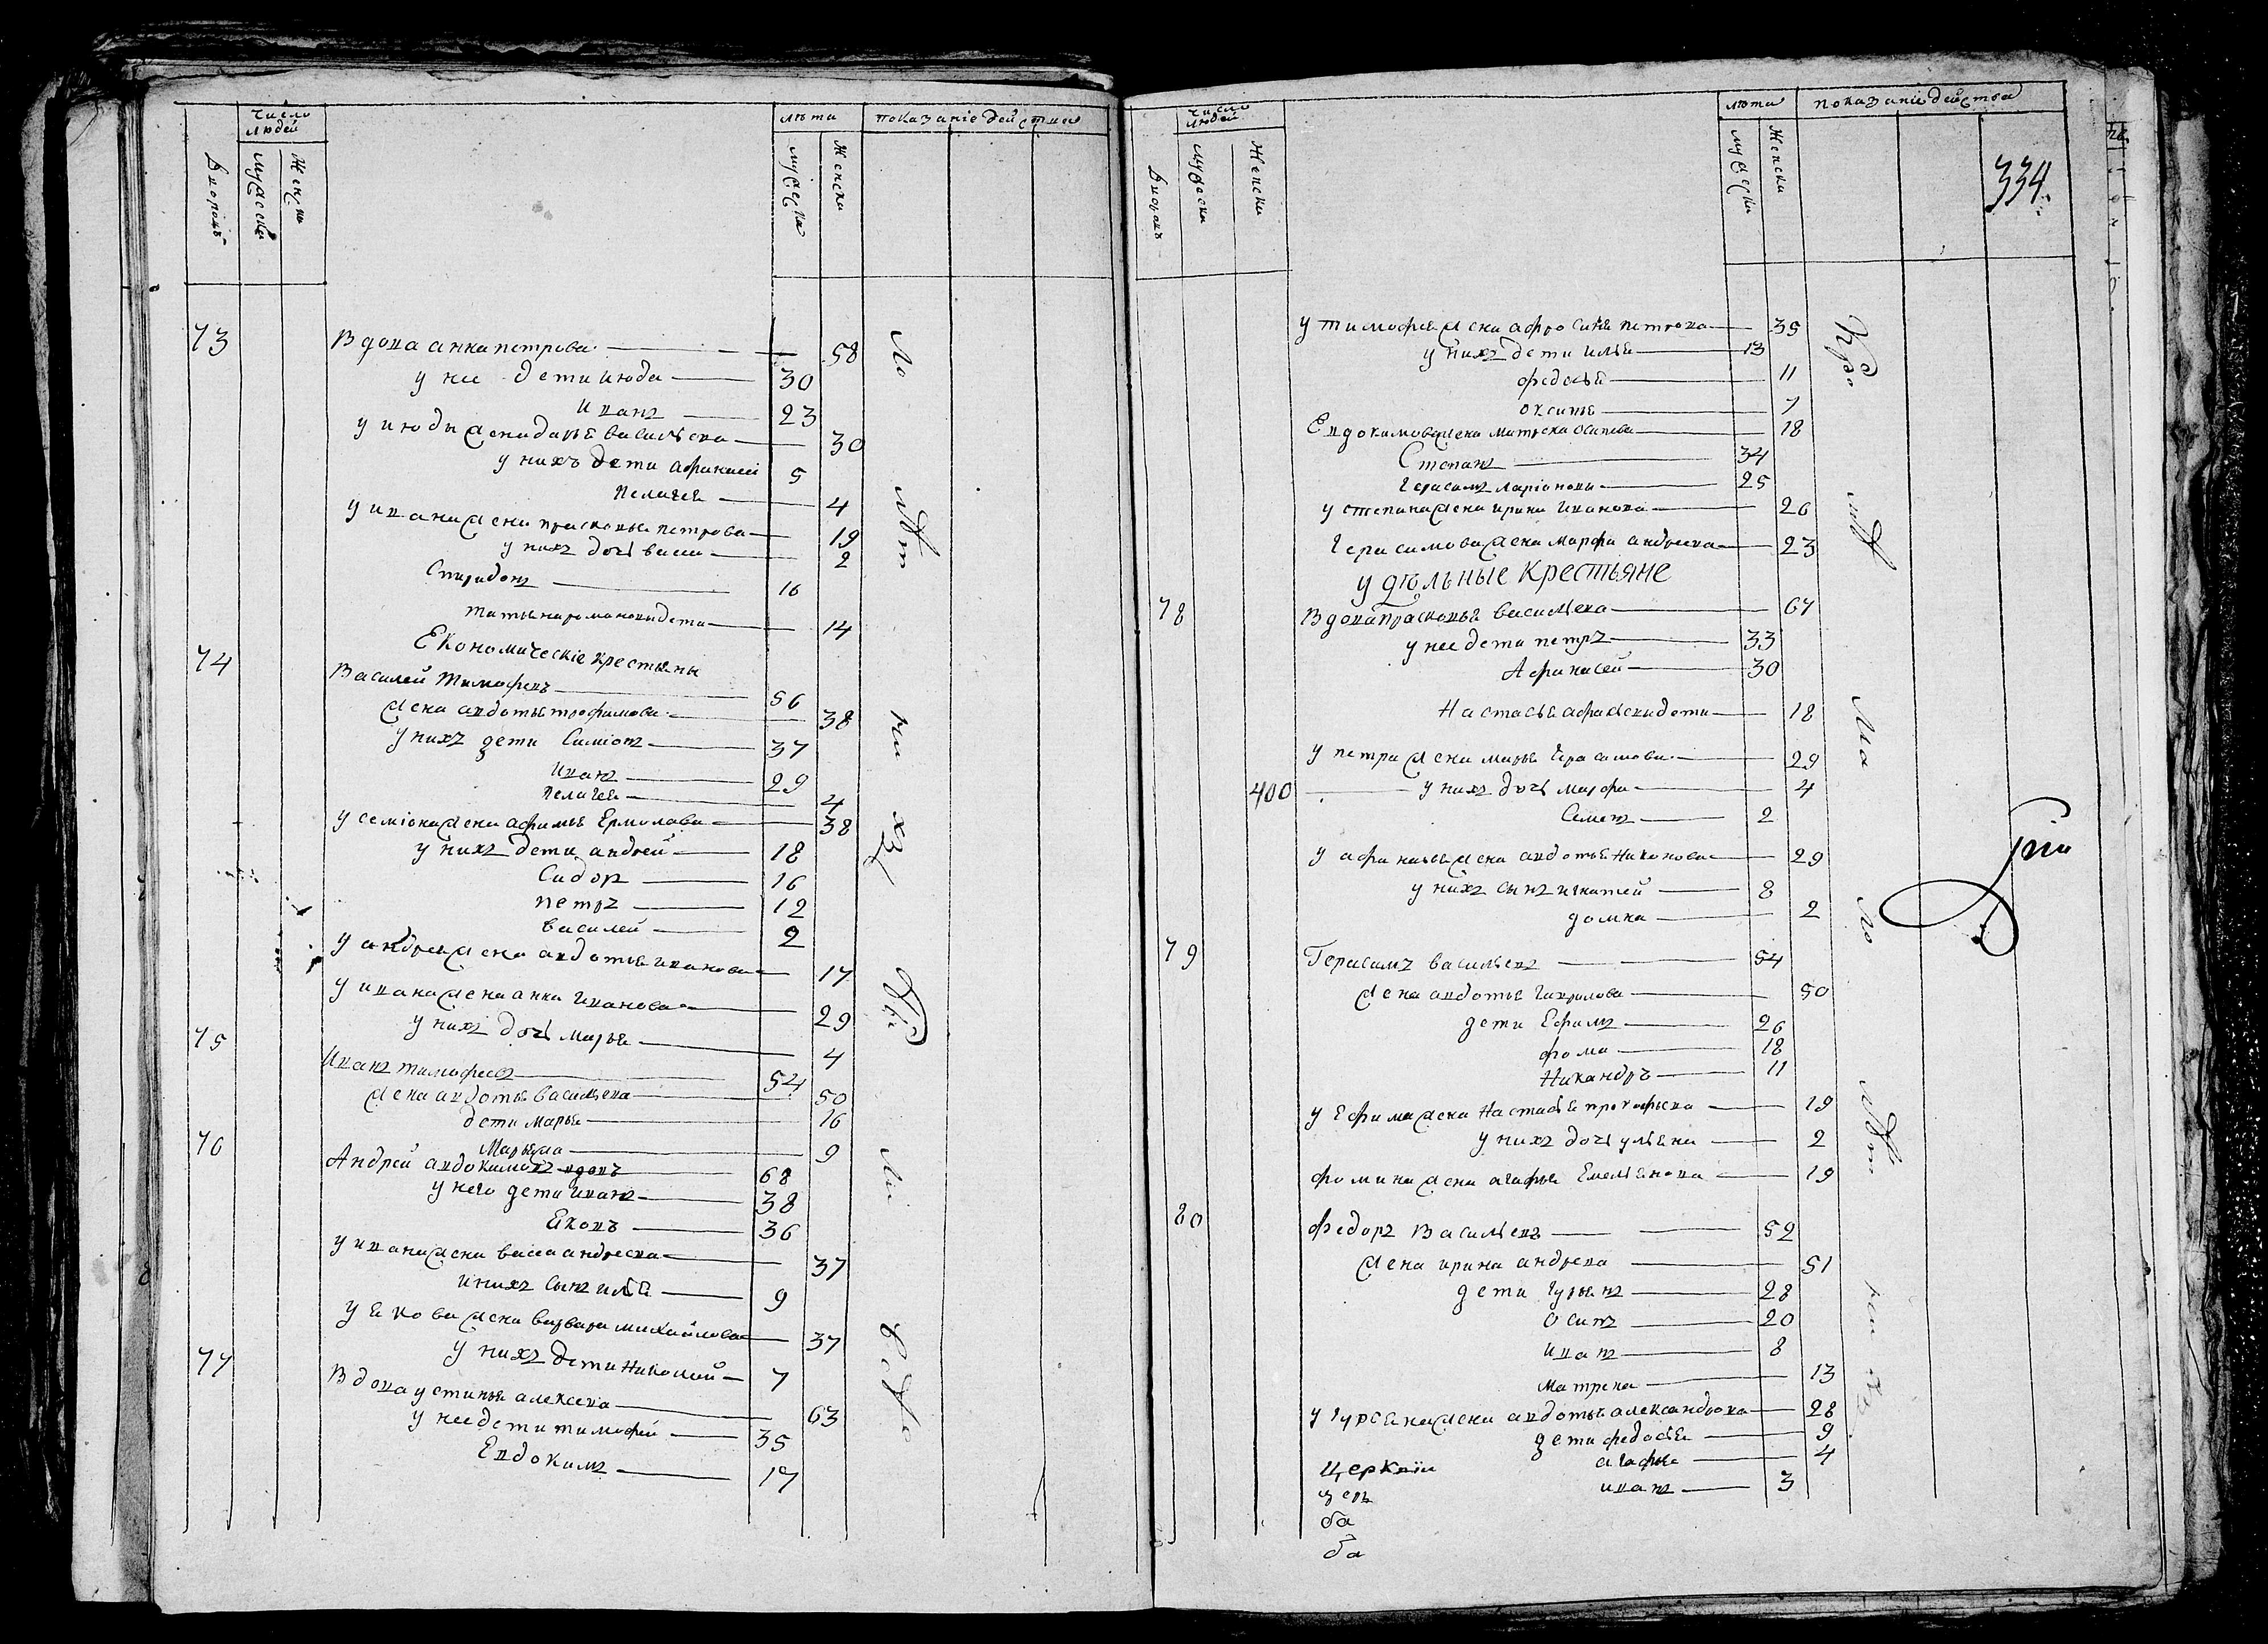 число людей
лѣта
показание действа
дворовъ
мужеска
женска
мужеска
женска
73 Вдова анна петрова 58
у нее дети июда 30
иванъ 23
у июды жена дарья васильева 30
у нихъ дети афанасей 5
пелагея 4
у ивана жена прасковья петрова 19
у нихъ дочь васса 2
Спиридонъ 16
татьяна романовы дети 14
Економическіе крестьяны
74 Василей Тимофеевъ 56
жена авдотья трофимова 38
у нихъ дети Симіонъ 37
иванъ 29
пелагея 4
у семіона жена афимья Ермолаева 38
у нихъ дети андрей 18
Сидоръ 16
петръ 12
василей 2
у андрея жена авдотья иванова 17
у ивана жена анна иванова 29
у нихъ дочь марья 4
75 Иванъ тимофеевъ 54
жена авдотья васильева 50
дети марья 16
Марья 9
76 Андрей авдокимовъ вдовъ 68
у него дети иванъ 38
Яковъ 36
у ивана жена васса андреева 37
у нихъ сынъ илья 9
у якова жена варвара михайлова 37
у нихъ дети николай 7
77 Вдова устинья алексева 63
у нее дети тимофей 35
Евдокимъ 17
число людей
лѣта
показаніе действа
дворовъ
мужеска
женска
мужеска
женска
334
у тимофея жена афросинья петрова 35
у нихъ дети илья 13
федосья 11
оксинья 7
Евдокимова жена матрена осипова 18
Степанъ 34
Герасимъ ларіоновы 25
у степана жена ирина иванова 26
Герасимова жена марфа андреева 23
удѣльные крестьяне
78 Вдова прасковья васильева 67
у нее дети петръ 33
Афанасей 30
Настасья афанасьевы дети 18
у петра жена марья Герасимова 29
400 у нихъ дочь марфа 4
Семенъ 2
у афанасья жена авдотья Никонова 29
у нихъ сынъ игнатей 8
домна 2
79 Герасимъ васильевъ 54
жена авдотья гаврилова 50
дети Ефимъ 26
фома 18
Никандръ 11
у Ефима жена Настасья прокофьева 19
у нихъ дочь ульяна 2
фомина жена агафья Емельянова 19
80 Федоръ Васильевъ 52
жена ирина андреева 51
дети гурьянъ 28
Осипъ 20
иванъ 8
матрена 13
у гурьяна жена авдотья александрова 28
дети федосья 9
агафья 4
иванъ 3
церквіи
церъ
ба
ба